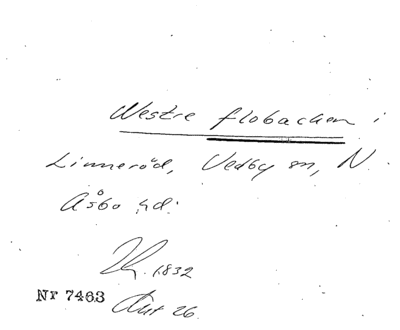 Westre flobacken i
Linneröd, Vedby sn, N.
Åsbo hd.
1832
Nr 7463
Akt 26